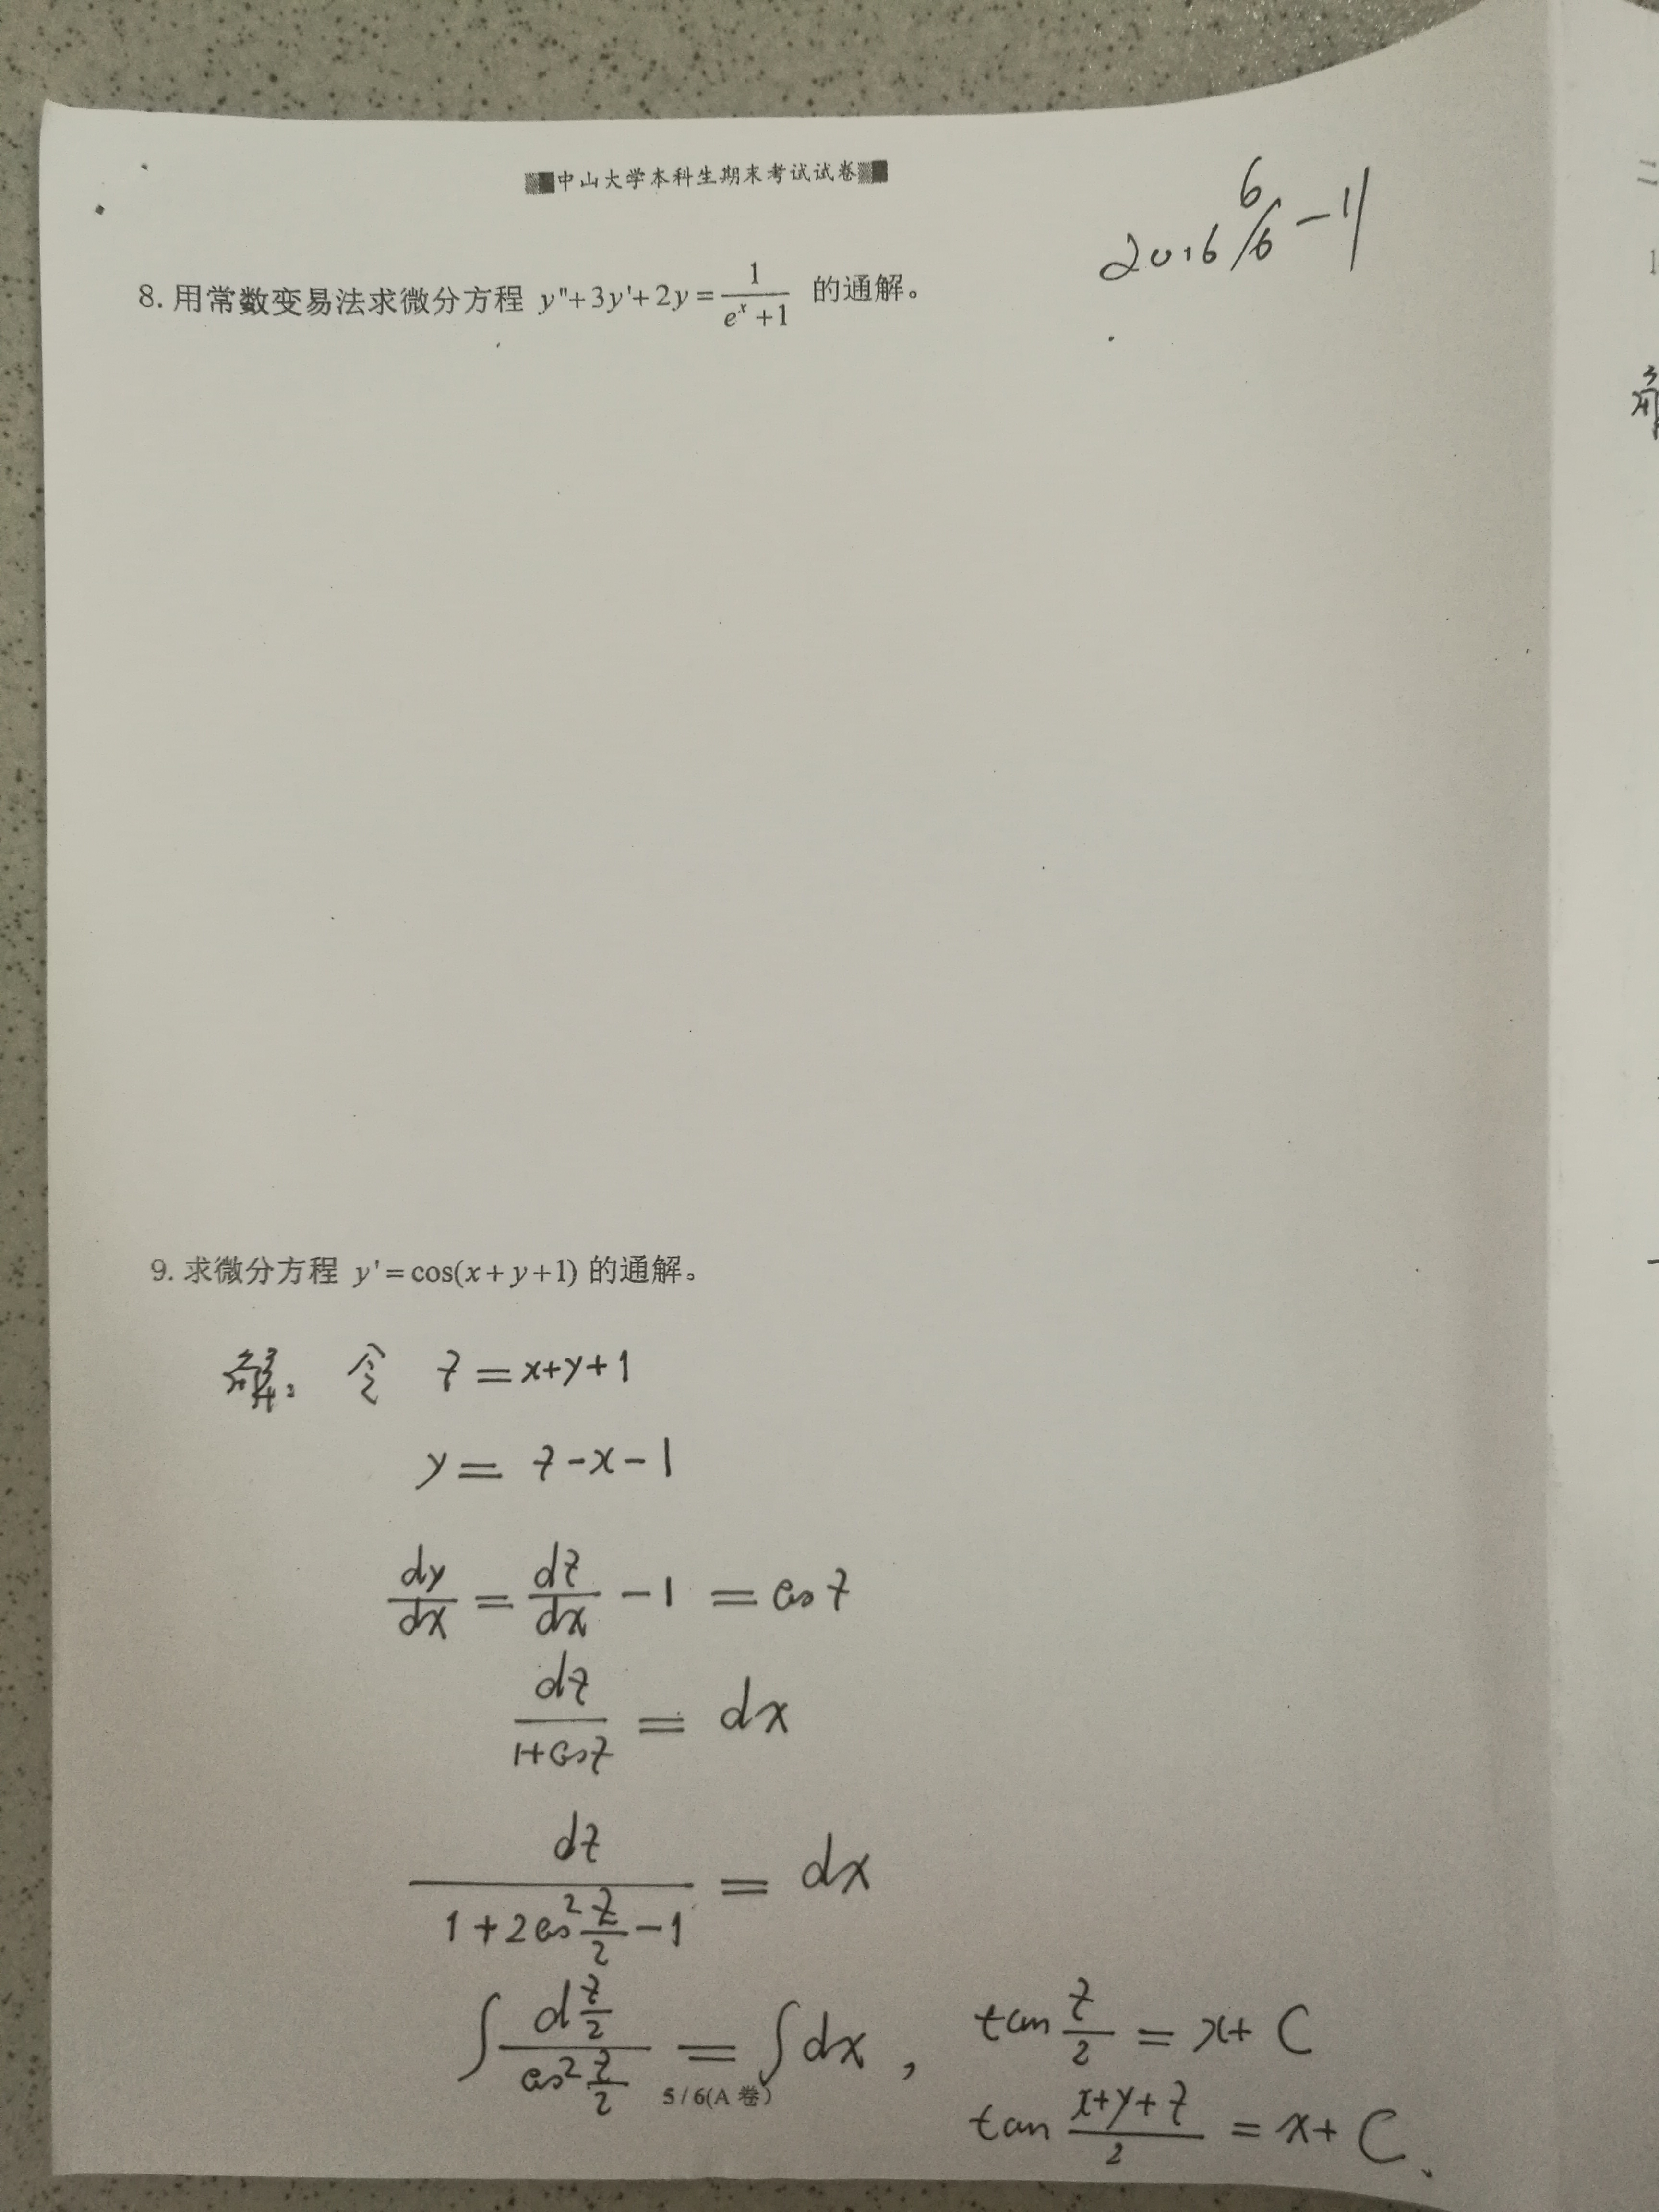 中山大学本科生期末考试试卷
2016 6/6 - 11
8. 用常数变易法求微分方程 y''+3y'+2y=1/(e^x+1) 的通解。
9. 求微分方程 y'=cos(x+y+1) 的通解。
解: 令 z=x+y+1
y=z-x-1
dy/dx=dz/dx-1=cosz
dz/(1+cosz)=dx
dz/(1+2cos²(z/2)-1)=dx
∫d(z/2)/cos²(z/2)=∫dx, tan(z/2)=x+C
tan((x+y+z)/2)=x+C.
5/6(A 卷)